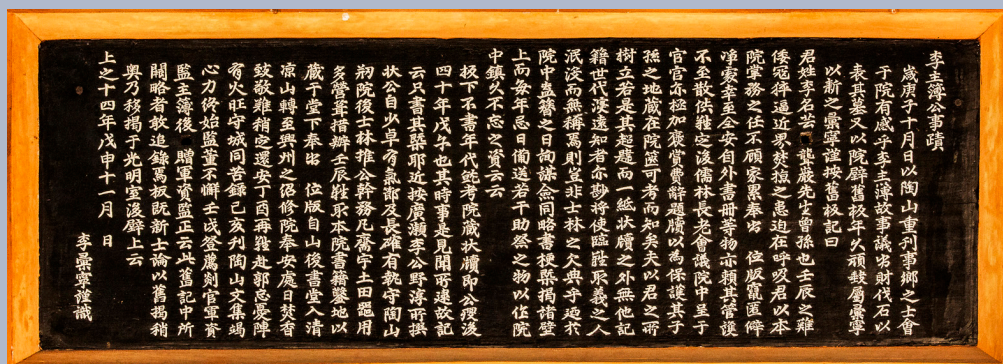 李主簿公事蹟
歲庚子十月日以陶山重刊事鄉之士會
于院有感乎李主簿故事議出財伐石以
表其墓又以院壁舊板年久頑敍屬彙寧
以新之彙寧謹按舊板記曰
君姓李名苦龍巖先生曾孫也壬辰之難
倭寇徉逼近界焚掠之患迫在呼吸君以本
院掌務之任不顧家累奉出 位版竄匿僻
淨處幸至全安自外書冊等物亦賴其管護
不至散佚難之後儒林長老會議院中至于
官官亦極加褒賞費辭題牘以為保護其子
孫之地藏在院篋可考而知矣夫以君之所
樹立若是其超越而一紙狀牘之外無他記
籍世代漸遠知者亦尠將使臨難取義之人
泯沒而無稱焉則豈非士林之欠典乎迺於
院中蠹簪之日詢謀僉同略書梗槩揭諸壁
上而每年忌日備送若干助祭之物以作院
中鎮久不忘之資云云
板下不書年代然考院藏狀牘即公歿後
四十年戊午也其時事是見聞所逮故記
云只書其槩耶近按廣瀨李公野淳所撰
狀公自少卓有氣節及長確有執守陶山
刱院後士林推公幹務凡齋宇土田器用
多營聳措辦壬辰難聚本院書籍鑿地以
藏于堂下奉出 位版自山後書堂入清
凉山轉至興州之紹修院奉安處日焚香
致敬難稍定還安丁酉再難赴郭忘憂陣
有火旺守城同苦錄己亥刊陶山文集竭
心力終始監董不懈壬戌登薦剡官軍資
監主簿後 贈軍資監正云此舊記中所
闕略者敢追錄焉板既新士論以舊揭稍
奧乃移揭于光明室後壁上云
上之十四年戊申十一月 日
李彙寧謹識